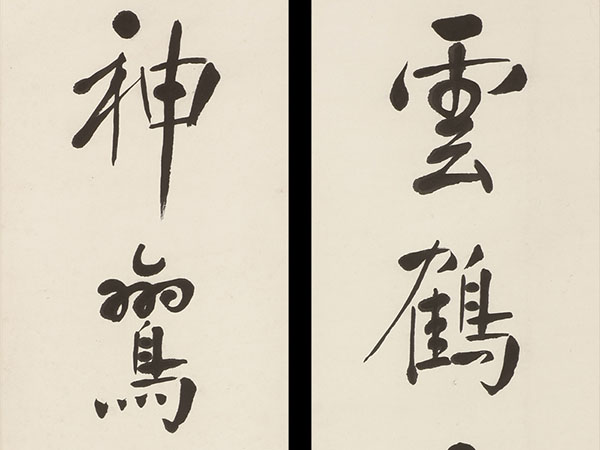 雲鶴
神鸞